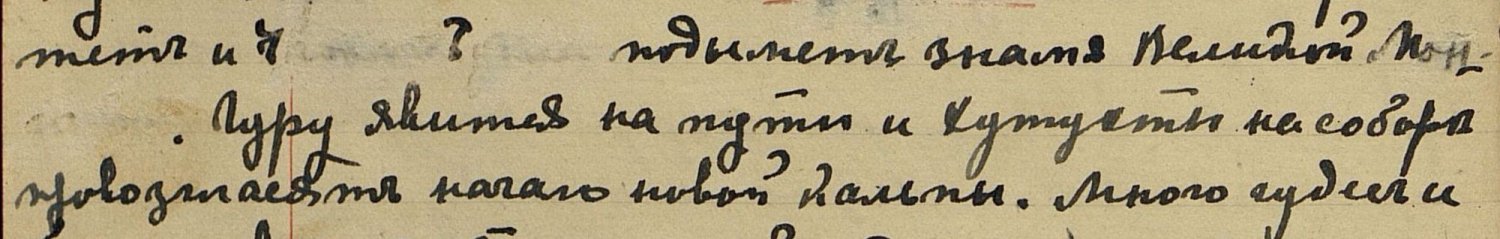 тетъ и Ч ? подыметъ знамя Великой Мон-
. Гуру явится на пути и хутухты на соборѣ
провозгласятъ начало новой кальпы. Много чудесъ и